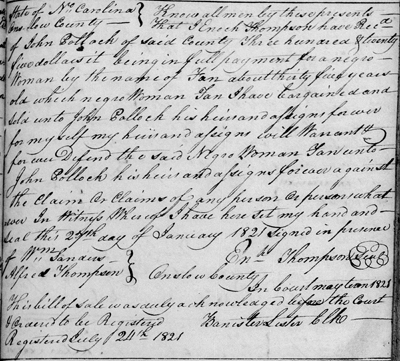 State of No. Carolina } Know all men by these presents
Onslow County } That I Enoch Thompson have Recd
of John Pollock of said County Three hundred & twenty
five dollars it being in full payment for a negro
Woman by the name of Fan about thirty five years
old which negro Woman Fan I have bargained and
Sold unto John Pollock his heirs and assigns forever
for my self my heirs and assigns will Warrant &
forever Defend the said Negro Woman Fan unto
John Pollock his heirs and assigns forever against
the Claim or Claims of any person or persons what
ever In Witness Whereof I have here set my hand and
seal this 27th day of January 1821 signed in presence
of Wm Sanders } Enh Thompson Seal
Alfred Thompson } Onslow County
In Court may term 1821
This bill of sale was duly acknowledged before the Court
& Ordered to be Registered Banister Lester Clk
Registered July 24th 1821